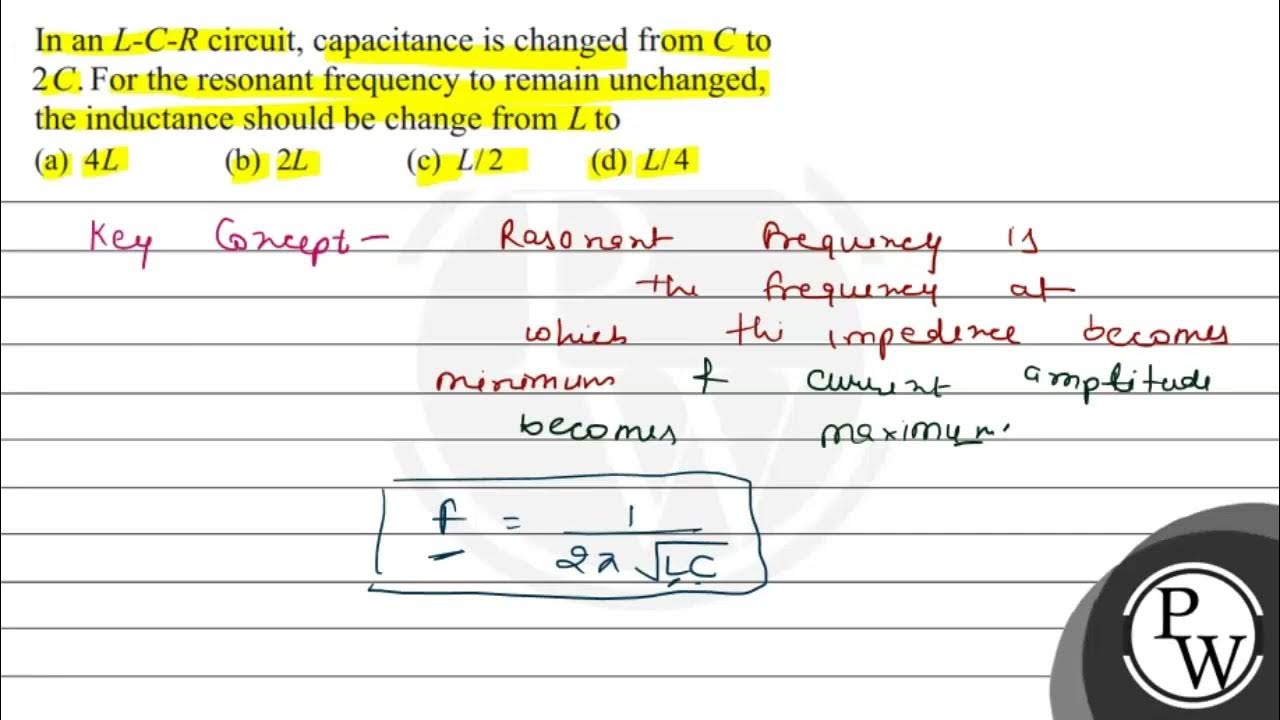 In an L-C-R circuit, capacitance is changed from C to
2C. For the resonant frequency to remain unchanged,
the inductance should be change from L to
(a) 4L (b) 2L (c) L/2 (d) L/4
Key Concept - Rasonant frequency is
the frequency at
which the impedence becomes
minimum & current amplitude
becomes maximum.
f = 1 / 2π √LC
P
W